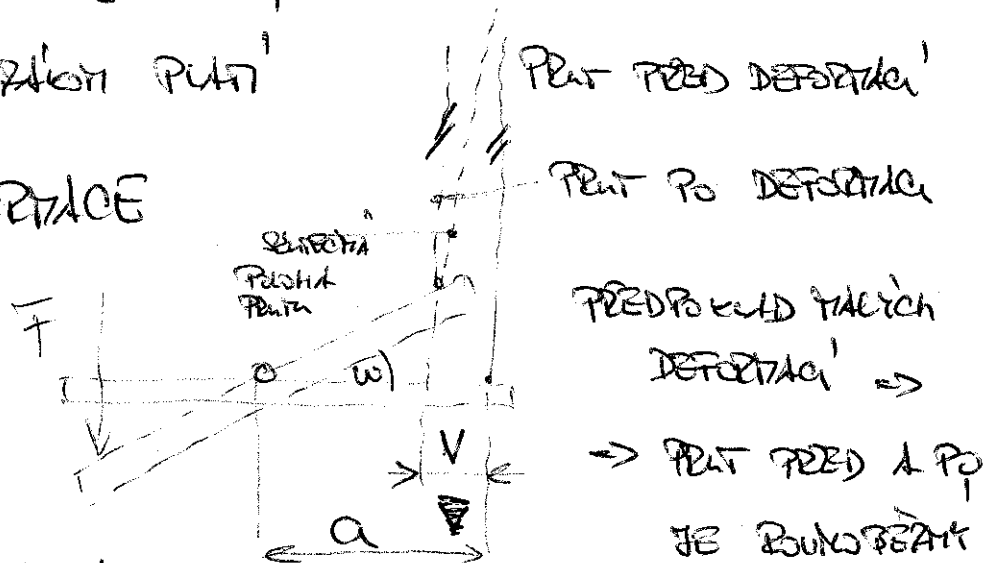 PLATÍ
PRUT PŘED DEFORMACÍ
PRUT PO DEFORMACI
SKUTEČNÁ
POLOHA
PRUTU
F
PŘEDPOKLAD MALÝCH
DEFORMACÍ =>
ω
V
=> PRUT PŘED A PO
a
JE ROVNOBĚŽNÝ